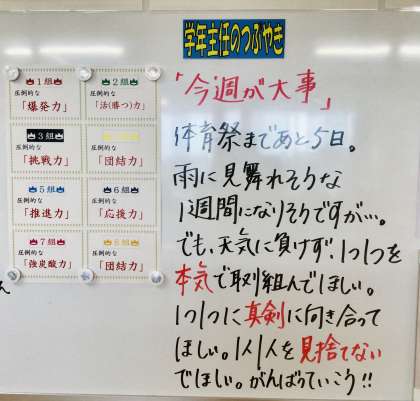 学年主任のつぶやき
「今週が大事」
体育祭まであと5日。
雨に見舞れそうな
1週間になりそうですが…。
でも、天気に負けず、1つ1つを
本気で取り組んでほしい。
1つ1つに真剣に向き合って
ほしい。1人1人を見捨てない
でほしい。がんばっていこう!!
1組
圧倒的な
「爆発力」
2組
圧倒的な
「活(勝つ)力」
3組
圧倒的な
「挑戦力」
圧倒的な
「団結力」
5組
圧倒的な
「推進力」
6組
圧倒的な
「応援力」
7組
圧倒的な
「強炭酸力」
8組
圧倒的な
「団結力」